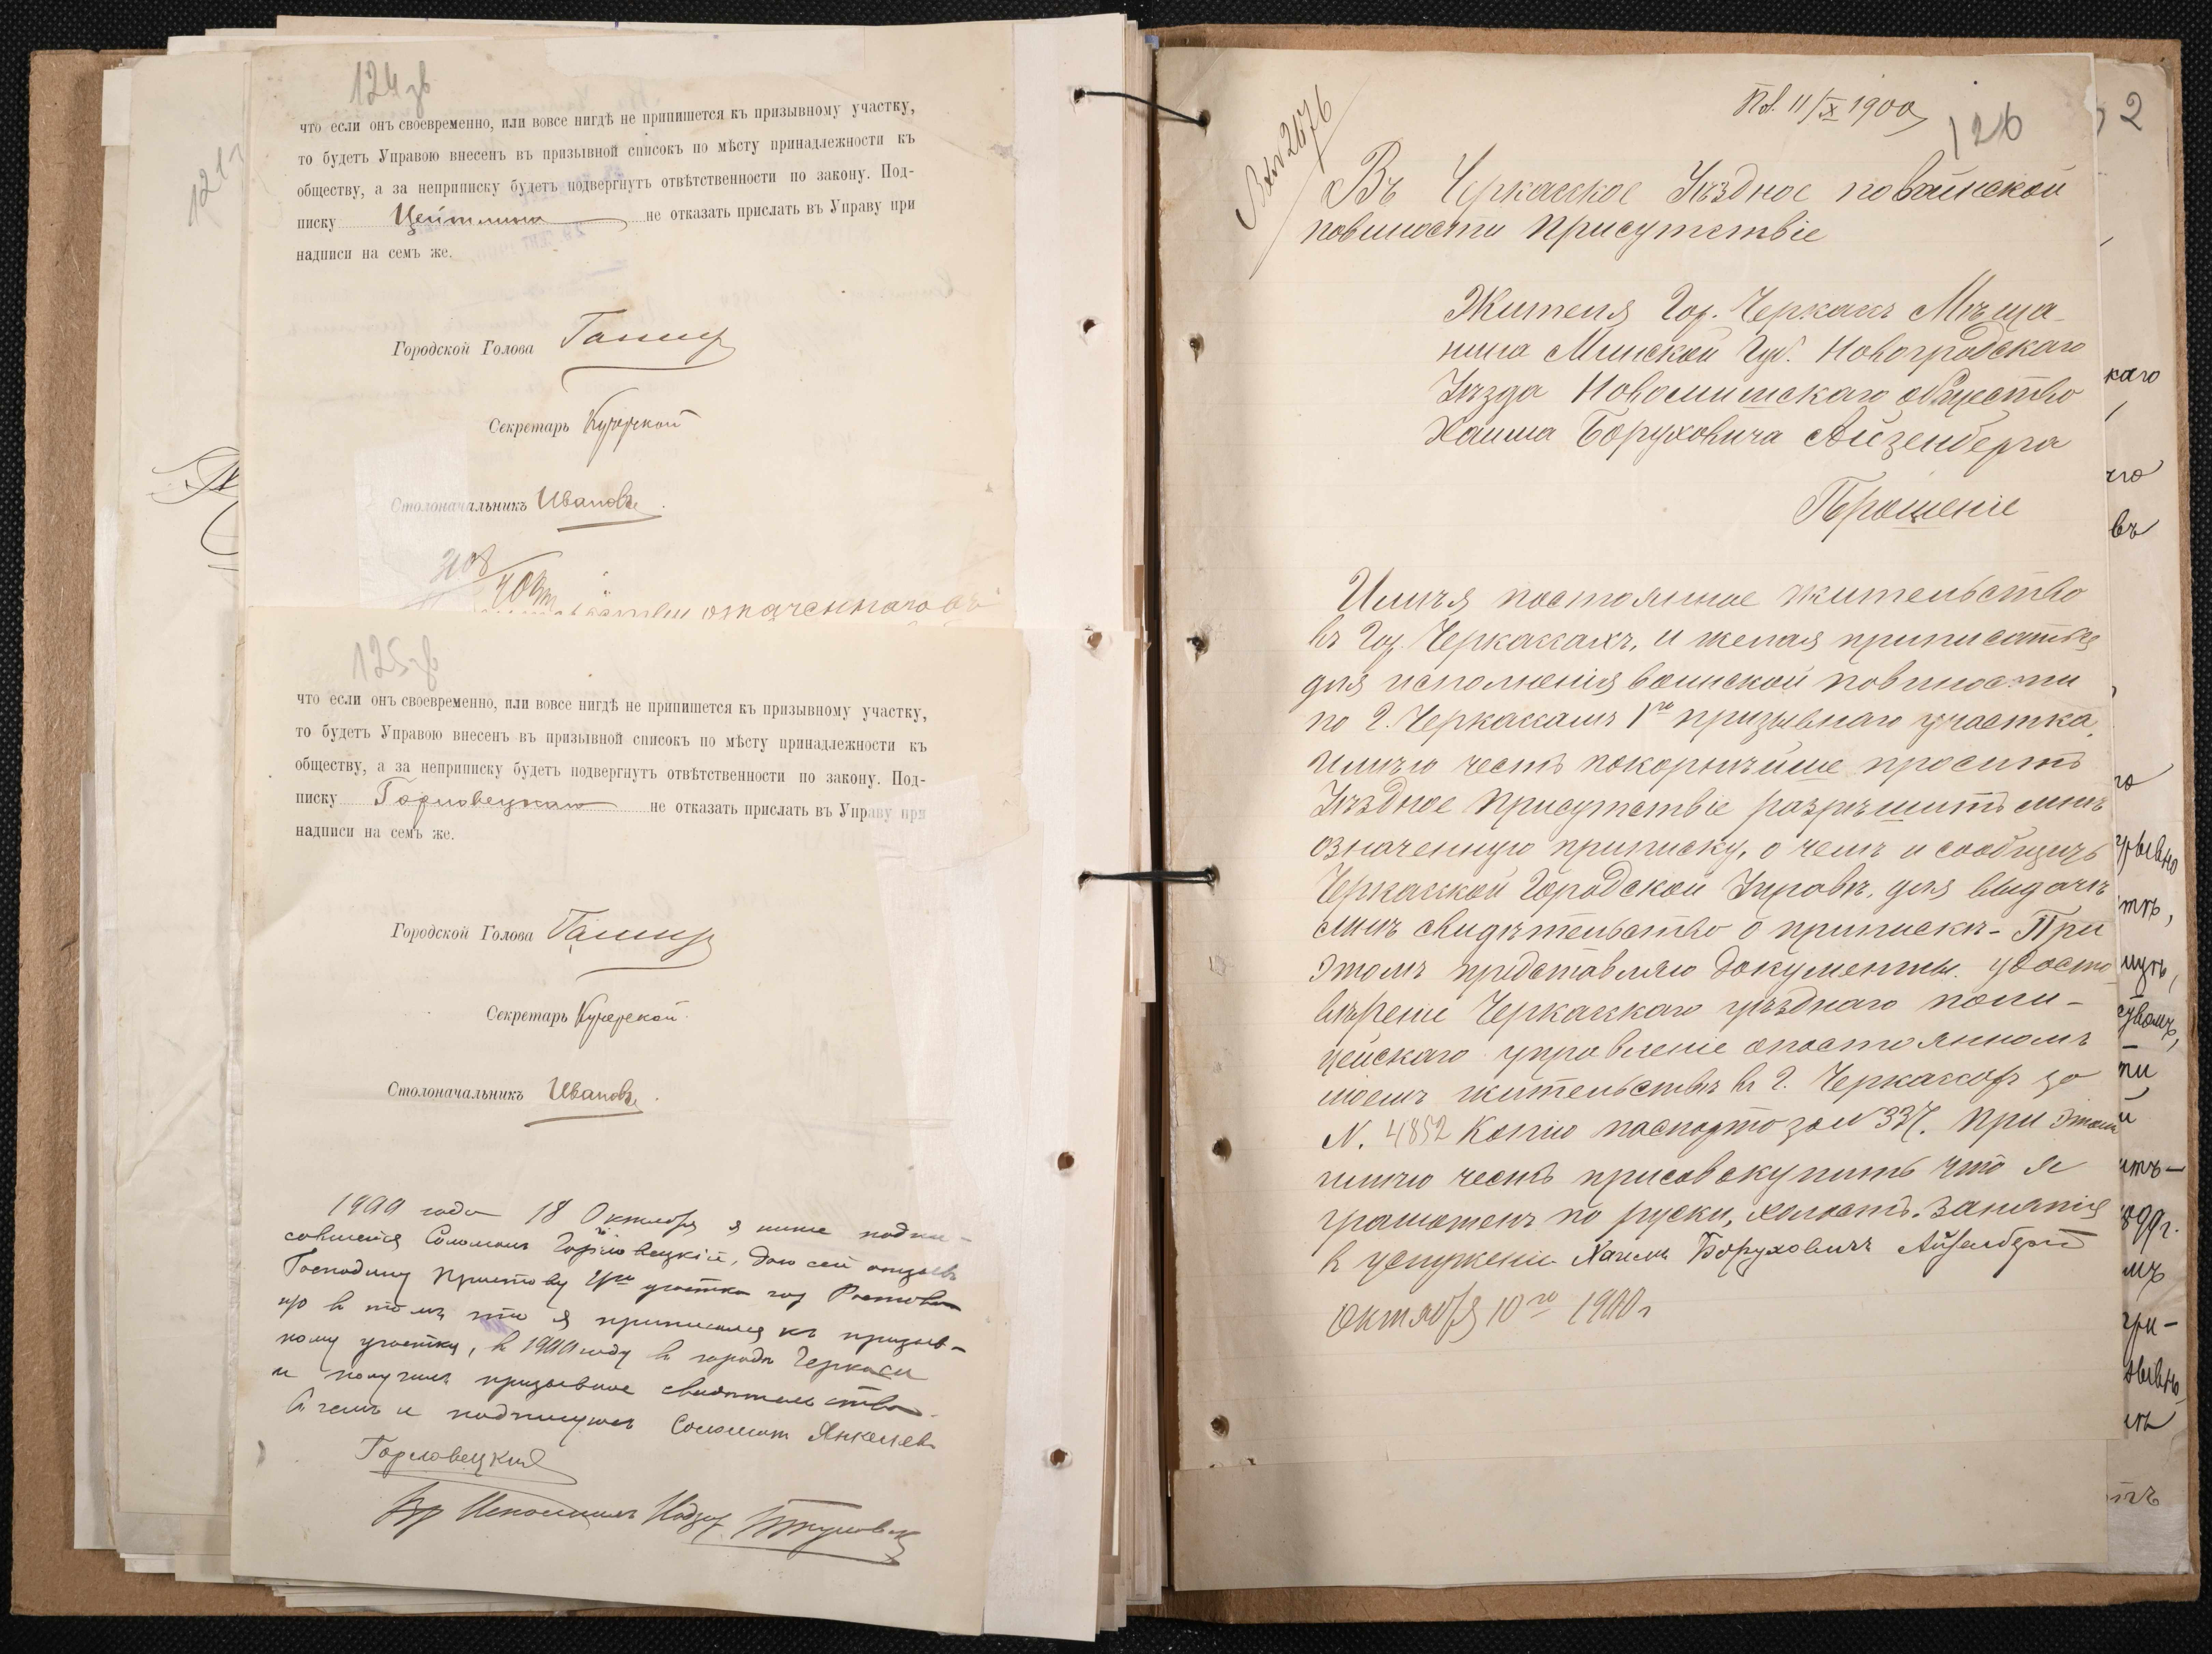 124 зв
что если онъ своевременно, или вовсе нигдѣ не припишется къ призывному участку,
то будетъ Управою внесенъ въ призывной списокъ по мѣсту принадлежности къ
обществу, а за неприписку будетъ подвергнутъ отвѣтственности по закону. Под-
писку Цейтлина не отказать прислать въ Управу при
надписи на семъ же.
Городской Голова
Секретарь
Столоначальникъ Ивановъ.
означеннаго
125 зв
что если онъ своевременно, или вовсе нигдѣ не припишется къ призывному участку,
то будетъ Управою внесенъ въ призывной списокъ по мѣсту принадлежности къ
обществу, а за неприписку будетъ подвергнутъ отвѣтственности по закону. Под-
писку Горловецкаго не отказать прислать въ Управу при
надписи на семъ же.
Городской Голова
Секретарь
Столоначальникъ Ивановъ.
1900 года 18 Октября я ниже подпи-
савшейся Соломонъ Горловецкій, даю сей отзывъ
Господину Приставу участка гор Ростова
н/Д в томъ что я приписался къ призыв-
ному участку, в 1900 году в городѣ Черкасы
и получилъ призывное свидѣтельство.
В чемъ и подписуюсь Соломонъ Янкелев
Горловецкій
121
Пол. 11/X 1900
126
Вх № 2676
Въ Черкасское Уѣздное по воинской
повиности Присутствіе
Жителя Гор. Черкасъ Мѣща-
нина Минской Губ. Новогрудскаго
Уѣзда Новомишскаго общество
Хаима Боруховича Айзенберга
Прошеніе
Имѣя постоянное жительство
въ Гор. Черкассахъ, и желая приписатся
для исполненія воинской повиности
по г. Черкассамъ 1го призывнаго участка,
имѣю честь покорнѣйше просить
Уѣздное Присутствіе разрѣшить мнѣ
означенную приписку, о чемъ и сообщить
Черкасской Городской Управѣ, для выдачѣ
мнѣ свидѣтельство о припискѣ - При
этомъ представляю документы. удосто
вѣрение Черкасскаго уѣзднаго поли-
цейскаго управление опостоянномъ
моемъ жительствѣ въ г. Черкассахъ за
N. 4852 Копію паспорта за N 337. При этомъ
имѣю честь присовокупить что я
грамотенъ по руски, холостъ. Занятія
в услужении Хаимъ Боруховичъ Айзенбергъ
Октября 10го 1900 г
2
каго
го
въ
го
ти
899 г.
мъ
при-